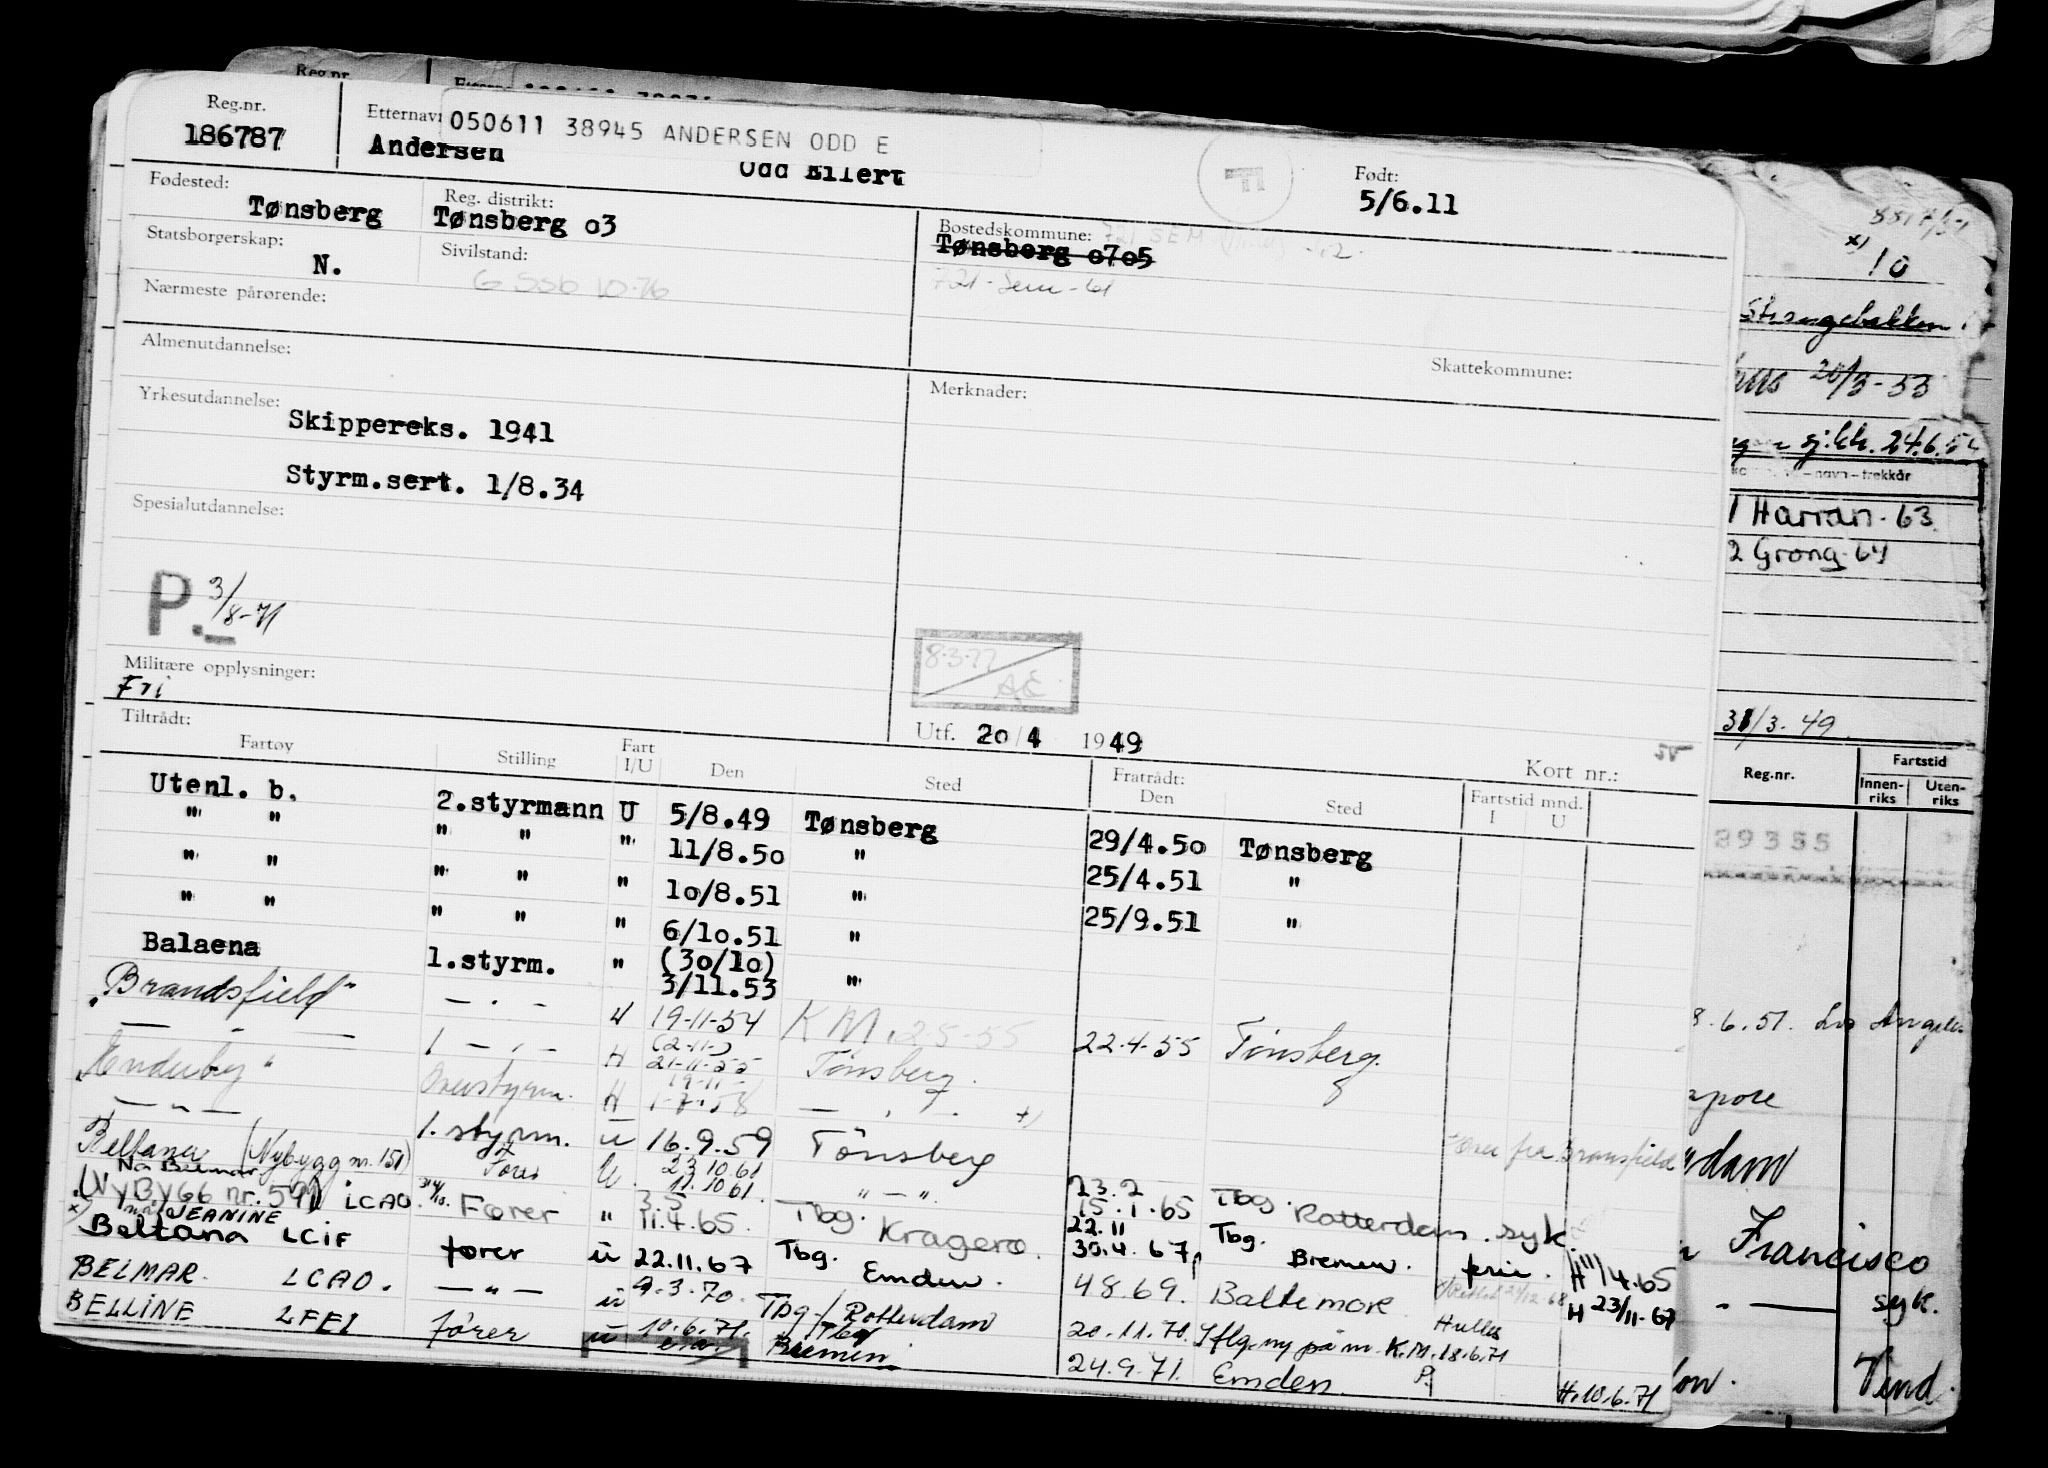 Reg.nr.
186787
Etternavn
050611 38945 ANDERSEN ODD E
Andersen
Odd Ellert
Født:
5/6.11
Fødested:
Tønsberg
Reg. distrikt:
Tønsberg o3
Bostedskommune:
Tønsberg o7o5
721-Sem-61
Statsborgerskap:
N.
Sivilstand:
G SSb 10.76
Nærmeste pårørende:
Almenutdannelse:
Skattekommune:
Yrkesutdannelse:
Skippereks. 1941
Styrm.sert. 1/8.34
Merknader:
Spesialutdannelse:
P. 3/8-71
8.3.77
AE
Militære opplysninger:
Fri
Utf. 20/4 1949
Kort nr.:
Tiltrådt:
Fartøy Stilling Fart I/U Den Sted Fratrådt: Den Sted Fartstid mnd. I U
Utenl. b. 2.styrmann U 5/8.49 Tønsberg 29/4.50 Tønsberg
" " " " " 11/8.50 " 25/4.51 "
" " " " " 10/8.51 " 25/9.51 "
" " " " " 6/10.51 "
Balaena 1.styrm. " (30/10) 3/11.53 "
"Brandsfield" — . — U 19-11-54 K M. 2-5-55 22.4-55 Tønsberg.
— " — 1 — . — H (2-11-) 21-11-55 Tønsberg.
"Enderby" Overstyrm. H 19-11- 1-7-58 — , — . x)
— " — 1. styrm. U 16.9.59 Tönsberg
Beltana (Nybygg nr. 151) Förer U. 23.10.61 11.10.61 " — " . 23.2 15.1.65 Tbg. Rotterdam. syk.
Nå Belmar
NyBYGG nr. 591 LCAO. Fører " 3.5 11.4.65. Tbg. Kragerø. 22.11 30.4.67 Tbg. Bremen. ferie. H 11/4.65
nå JEANINE
x) Beltana LCIF fører U 22.11.67 Tbg. Emden. 4.8.69. Baltimore H 23/11-67
BELMAR. LCAO. — " — U 9.3.70. Tbg-/Rotterdam 20.11.70. Iflg. ny på m. K.M. 18.6.71
BELLINE LFEI fører U 10.6.71. Tbg Bremen. 24.9.71. Emden. P. H.10.6.71
x)
10
20/3-53
sj.kk. 24.6.54
navn-trekkår
1 Harran-63
2 Grong-64
31/3.49
Reg.nr.
Fartstid
Innen-
riks
Uten-
riks
39355
8.6.51. Los Angeles
Francisco
syk.